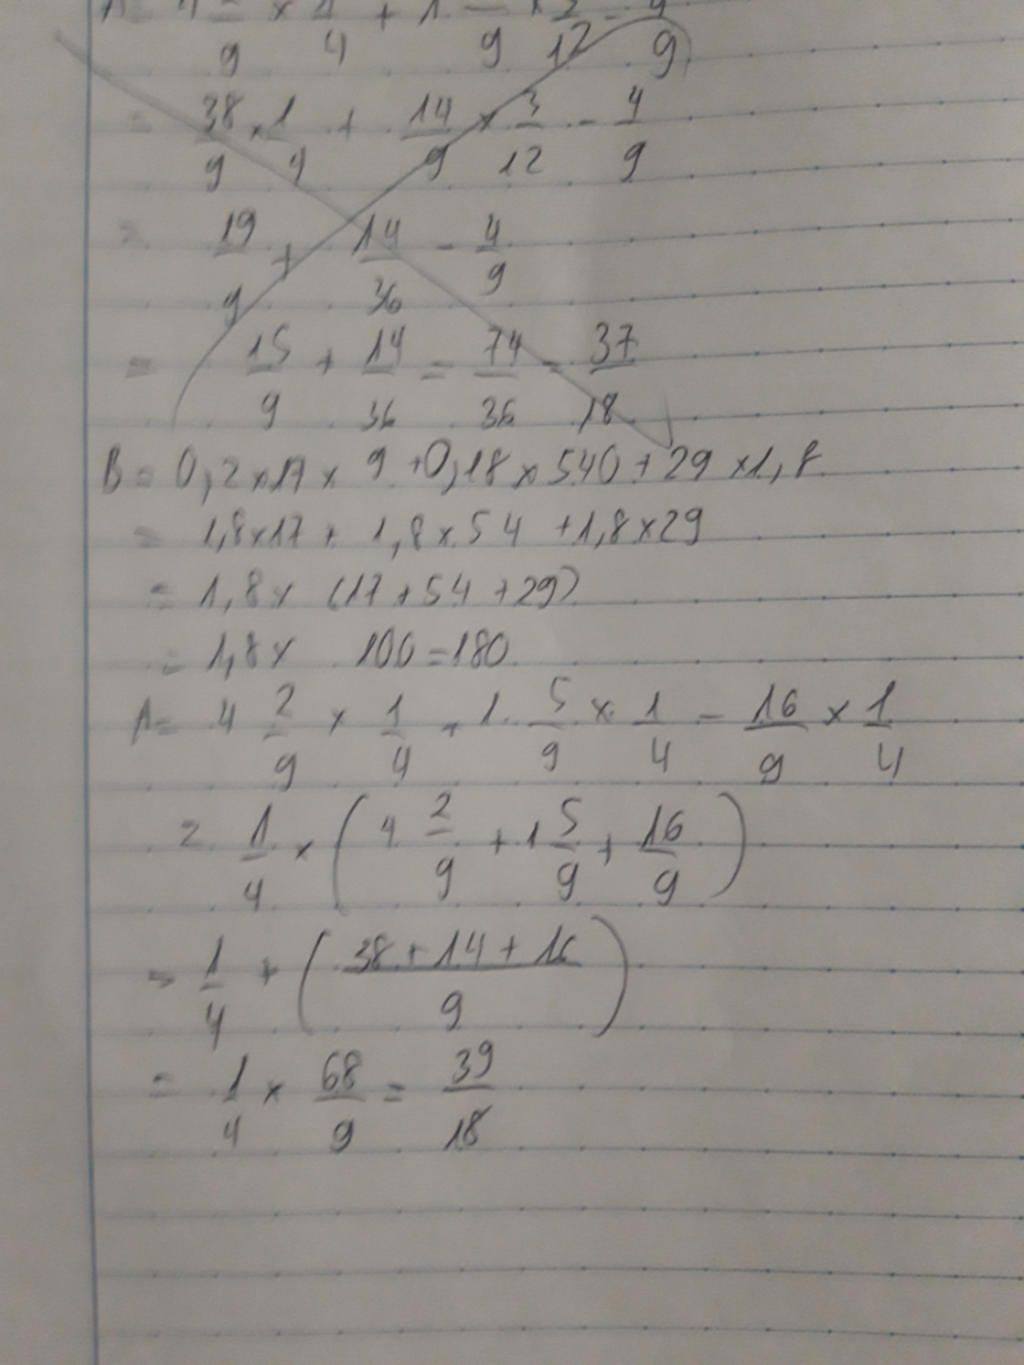 9 4 9 12 9
= 38/9 × 1/4 + 14/9 × 3/12 - 4/9
= 19/9 + 14/36 - 4/9
= 15/9 + 14/36 = 74/36 = 37/18
B = 0,2 × 17 × 9 + 0,18 × 540 + 29 × 1,8
= 1,8 × 17 + 1,8 × 54 + 1,8 × 29
= 1,8 × (17 + 54 + 29)
= 1,8 × 100 = 180
A = 4 2/9 × 1/4 + 1 5/9 × 1/4 - 16/9 × 1/4
= 1/4 × (4 2/9 + 1 5/9 + 16/9)
= 1/4 + (38 + 14 + 16 / 9)
= 1/4 × 68/9 = 39/18